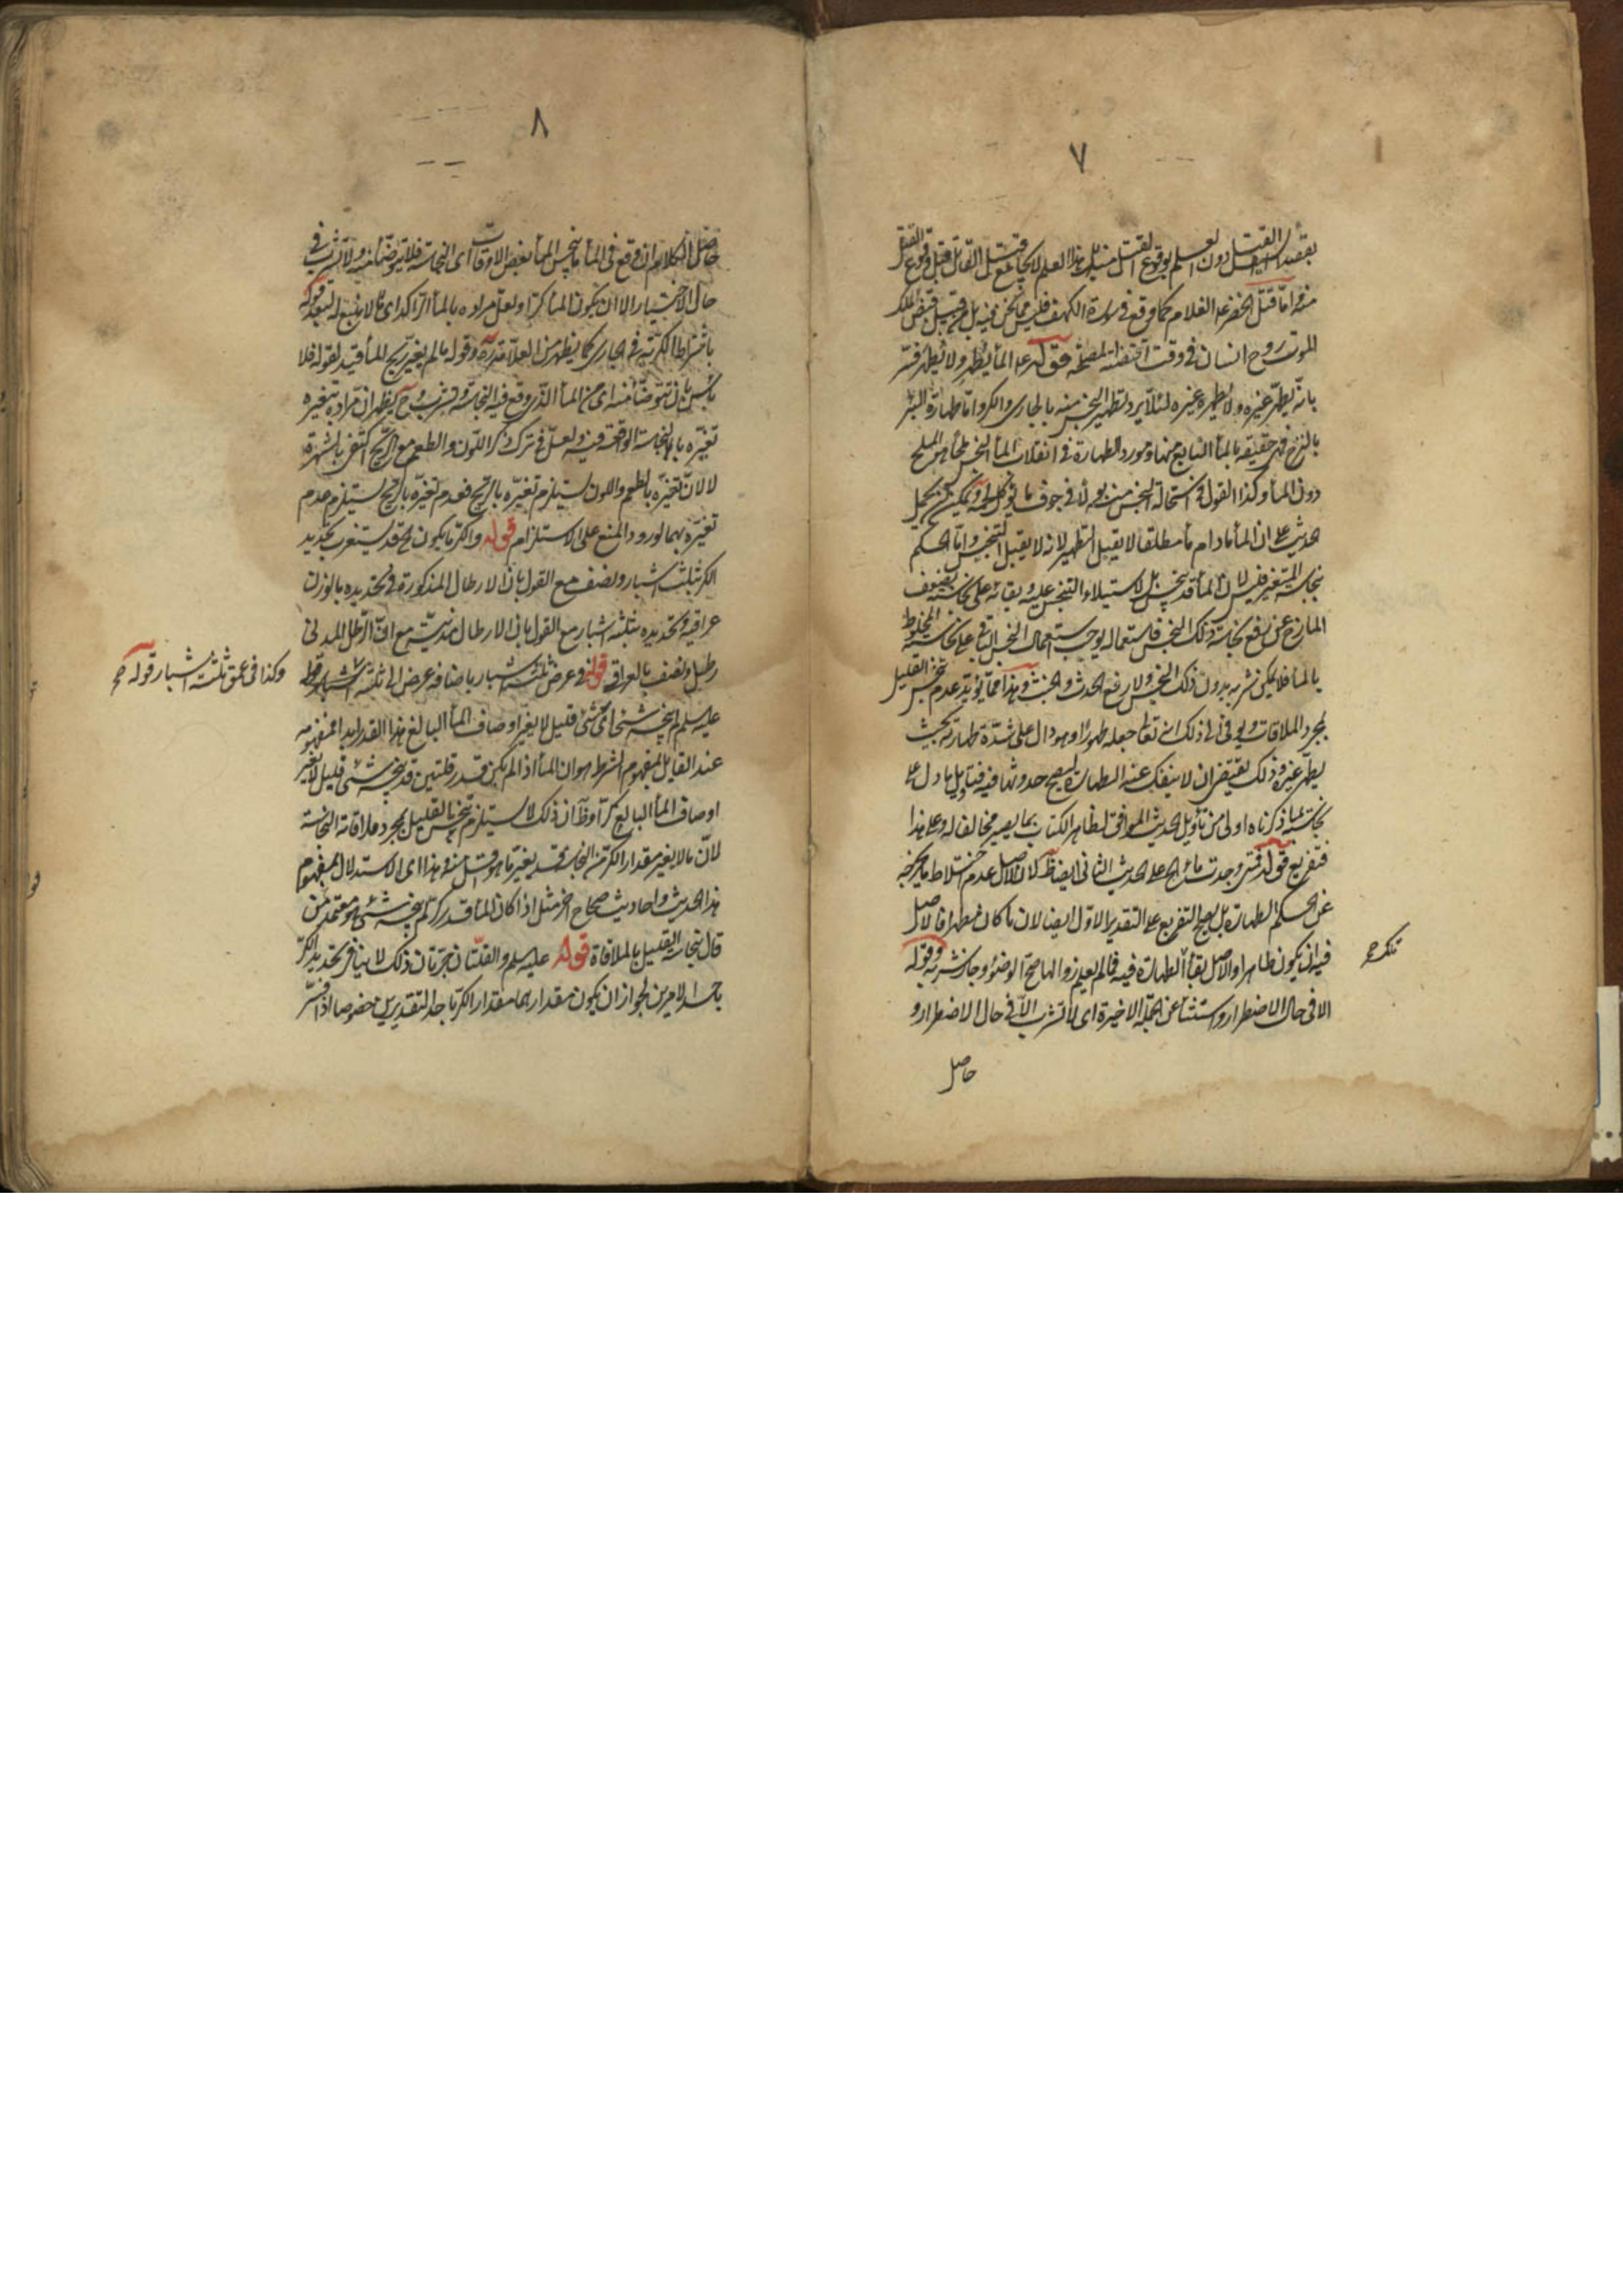 ٧
بقصد القتل دون العلم بوقوع القتل منه بل هذا العلم لا يجامع قتل القاتل قبل وقوع القتل
منه واما قتل الخضر ع الغلام كما وقع فى سورة الكهف فليس مما نحن فيه بل هو من قبيل قبض ملك
الموت روح انسان فى وقت اقتضته المصلحة قوله ع الماء يطهر ولا يطهر فسر
بانه يطهر غيره ولا يطهره غيره لئلا يرد تطهير النجس منه بالجارى والكر واما طهارة البئر
بالنزح فهى حقيقة بالماء النابع منها ومورد الطهارة فى انقلاب الماء النجس ملحا هو الملح
دون الماء وكذا القول فى استحالة النجس منه بولا فى جوف ما يؤكل لحمه ويمكن حمل
الحديث على ان الماء ما دام ماء مطلقا لا يقبل التطهير لانه لا يقبل التنجيس واما الحكم
بنجاسة المتغير فليس لان الماء قد تنجس بل لاستيلاء النجس عليه وبقائه على نجاسته فيضعف
الممازج عن رفع نجاسة ذلك النجس فاستعماله يوجب استعمال النجس الباقى على نجاسته المخلوط
بالماء فلا يمكن شربه بدون ذلك النجس ولا رفع الحدث والخبث وهذا مما يؤيد عدم نجس القليل
بمجرد الملاقات ويومى الى ذلك انه تعالى جعله طهورا وهو دال على شدة طهارته بحيث
يطهر غيره وذلك يقتضى ان لا ينفك عنه الطهارة ليصح حدوثها فيه فتاويل ما دل على
نجاسته لما ذكرناه اولى من تأويل الحديث الموافق لظاهر الكتاب بما يصير مخالفا له وعلى هذا
فتفريع قوله فمتى وجدت ماء الخ على الحديث الثانى ايضا ظ لان الاصل عدم اختلاط ما يخرجه
عن الحكم الطهارة بل يصح التفريع على التقدير الاول ايضا لان ما كان مطهرا فالاصل
فيه ان يكون طاهرا والاصل بقاء الطهارة فيه فما لم يعلم زوالها صح الوضوء وجاز شربه وقوله
الا فى حال الاضطرار استثناء عن الجملة الاخيرة اى لا تشرب الا فى حال الاضطرار و
حاصل
٨
حاصل الكلام ان وقع فى الماء ما ينجس الماء بعض الاوقات اى النجاسة فلا يتوضأ منه ولا تشرب فى
حال الاختيار الا ان يكون الماء كرا ولعل مراده بالماء الراكد اى ما لا ينبع له لبعد قوله
باشتراط الكرية فى الجارى كما يظهر من العلامة قدره وقوله ما لم يغير ريح الماء قيد لقوله فلا
بأس بان تتوضأ منه اى من الماء الذى وقع فيه النجاسة وتشرب وح يظهر ان مراده بتغيره
تغيره بالنجاسة الواقعة فيه ولعل فى ترك ذكر اللون والطعم مع الريح اكتفى بالشهرة
لا لان تغيره بالطعم واللون يستلزم تغيره بالريح فعدم تغيره بالريح يستلزم عدم
تغيره بهما لورود المنع على الاستلزام قوله واكثر ما يكون الخ قد يستغرب تحديد
الكر بثلثة اشبار ونصف مع القول بان الارطال المذكورة فى تحديده بالوزن
عراقية وتحديده بثلثة اشبار مع القول بان الارطال مدنية مع ان الرطل المدنى
رطل ونصف بالعراقى قوله فى عرض ثلثة اشبار باضافة عرض الى ثلثة اشبار
وكذا فى عمق ثلثة اشبار قوله صح
عليه السلم لم ينجسه شئ اى شئ قليل لا يغير اوصاف الماء البالغ هذا القدر ابدا فمفهومه
عند القايل بمفهوم الشرط هو ان الماء اذا لم يكن قدر قلتين قد ينجسه شئ قليل لا يغير
اوصاف الماء البالغ كرا وظ ان ذلك لا يستلزم تنجس القليل بمجرد ملاقاة النجاسة
لان ما لا يغير مقدار الكر من النجاسة قد يغير ما هو اقل منه وهذا اى الاستدلال بمفهوم
هذا الحديث واحاديث صحاح اخر مثل اذا كان الماء قدر كر لم ينجسه شئ هو معتمد من
قال بنجاسة القليل بالملاقاة قوله عليه السلم والقلتان جرتان ذلك لا ينافى تحديد الكر
باحد الامرين لجواز ان يكون مقدارهما مقدار الكر باحد التقديرين خصوصا اذا فسر